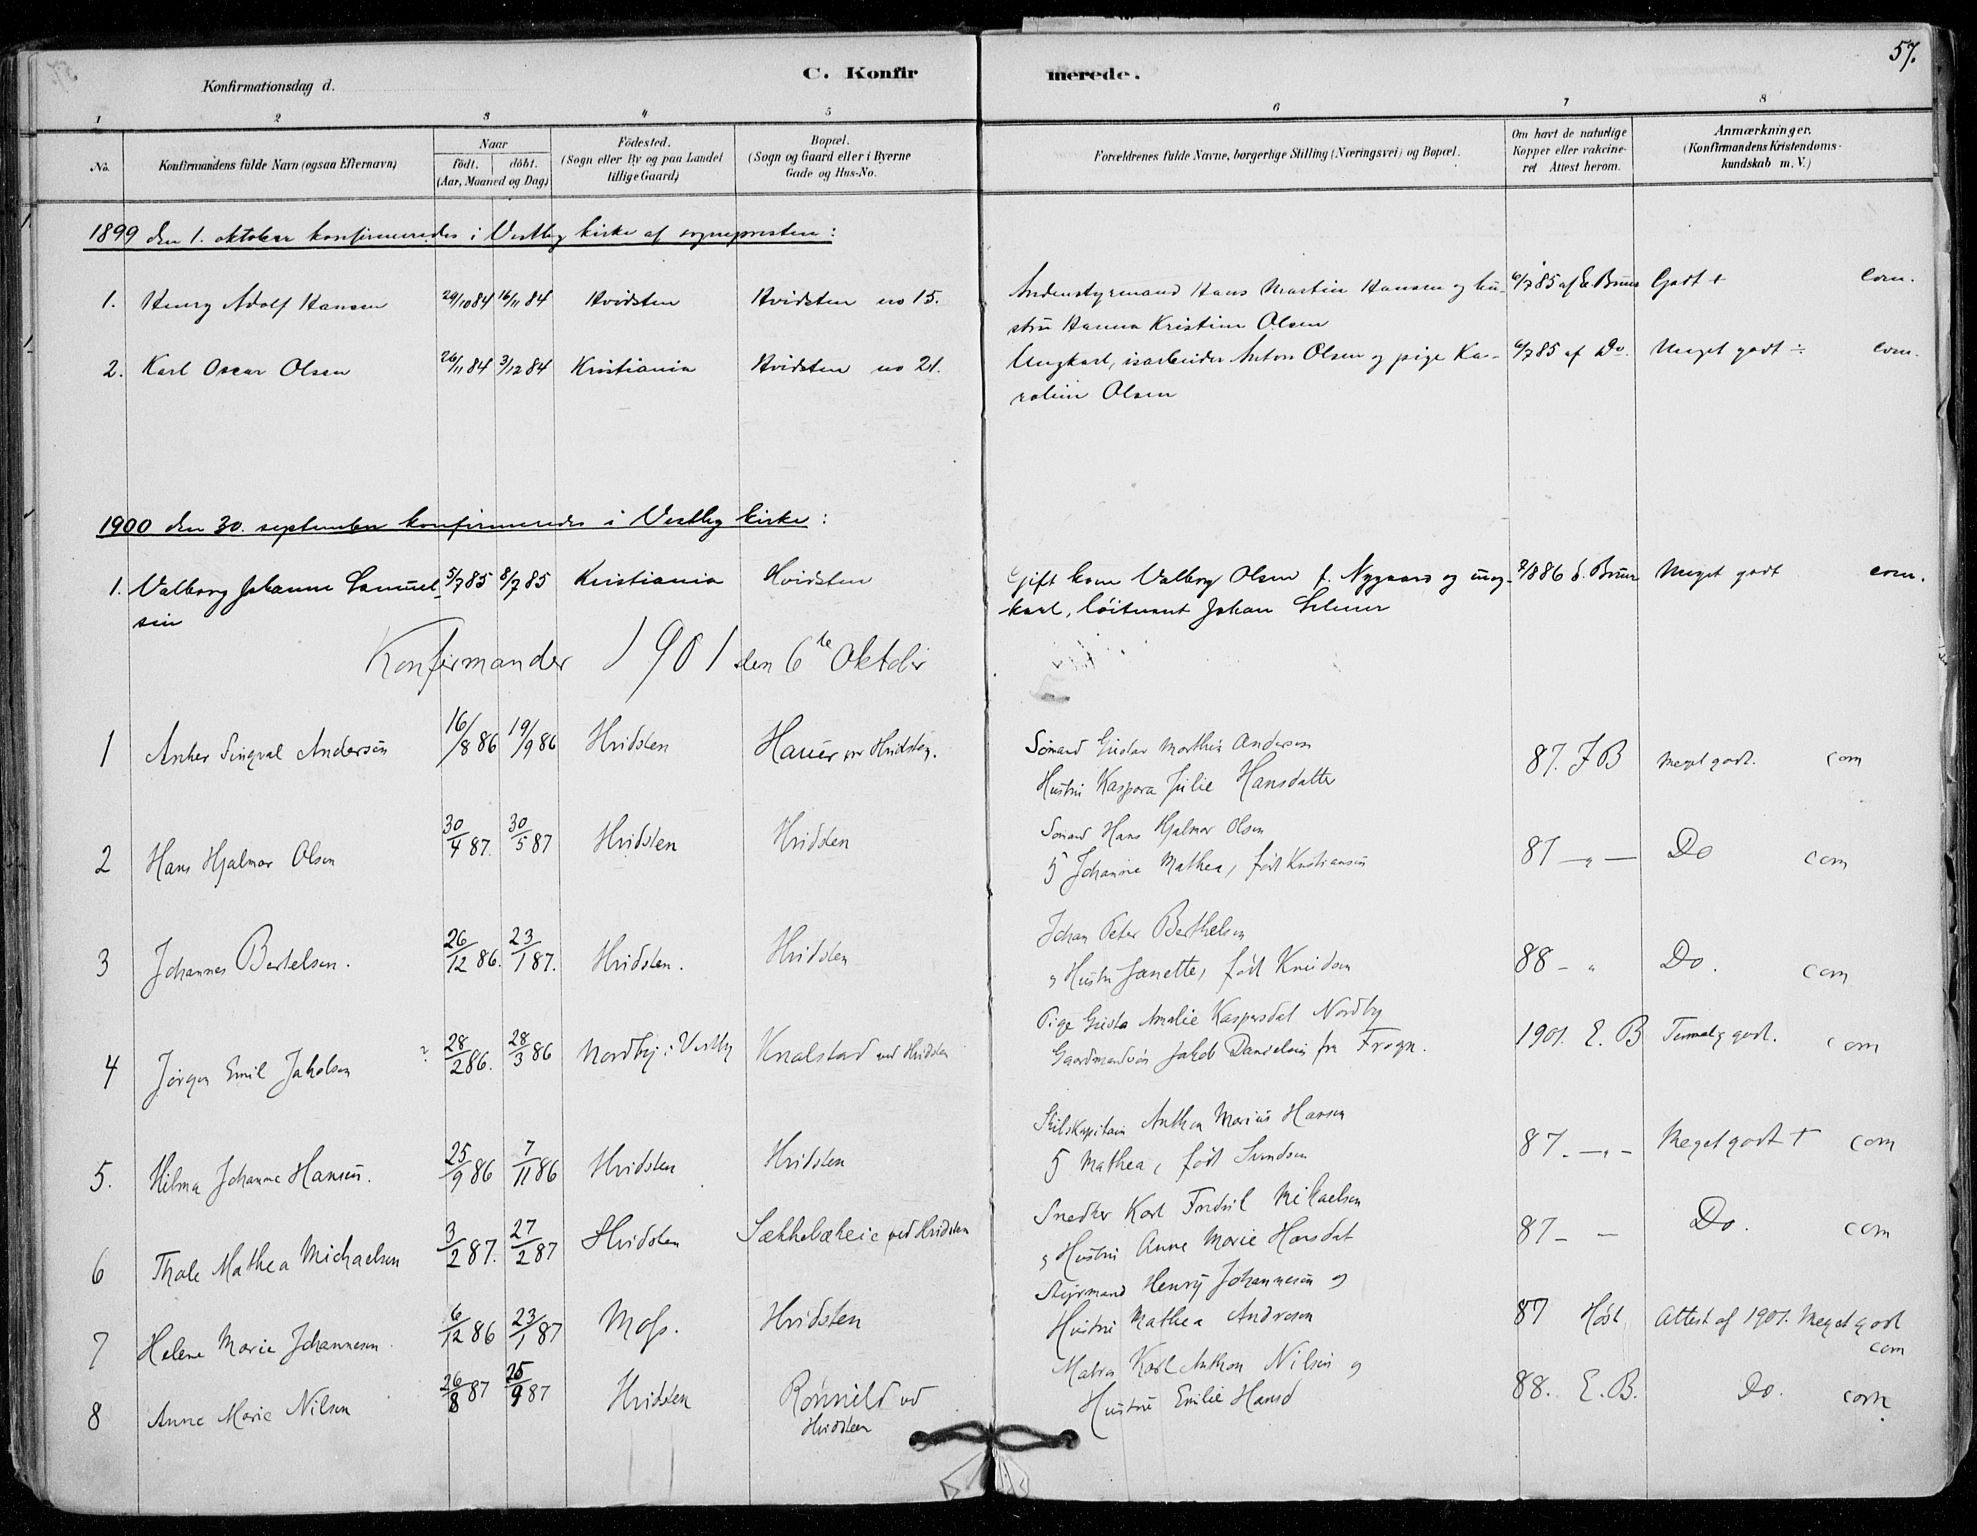 57.
C. Konfirmerede.
Konfirmationsdag d.
1 2 3 4 5 6 7 8
No. Konfirmandens fulde Navn (ogsaa Efternavn) Naar födt. döbt. (Aar, Maaned og Dag) Födested. (Sogn eller By og paa Landet tillige Gaard) Bopæl. (Sogn og Gaard eller i Byerne Gade og Hus-No. Forældrenes fulde Navne, borgerlige Stilling (Næringsvei) og Bopæl. Om havt de naturlige Kopper eller vakcineret Attest herom. Anmærkninger. (Konfirmandens Kristendomskundskab m. V.)
1899 den 1. oktober konfirmeredes i Vestby kirke af sognepresten:
1. Henry Adolf Hansen 29/10 84 16/11 84 Hvidsten Hvidsten no 15. Andenstyrmand Hans Martin Hansen og hu- 6/7 85 af E. Bruun Godt + com.
stru Hanna Kristine Olsen
2. Karl Oscar Olsen 26/11 84 3/12 84 Kristiania Hvidsten no 21. Ungkarl, isarbeider Anton Olsen og pige Ka- 6/7 85 af Do. Meget godt ÷ com.
roline Olsen
1900 den 30. september konfirmeredes i Vestby kirke:
1. Valborg Johanne Samuel- 5/7 85 8/7 85 Kristiania Hvidsten Gift kone Valborg Olsen f. Nygaard og ung- 2/8 86 E. Bruun Meget godt com.
sen karl, løitnant Johan
Konfirmander 1901 den 6te Oktobr
1 Anker Sinqval Andersen 16/8 86 19/9 86 Hvidsten Hauer ved Hvidsten. Sömand Gustav Marthin Andersen 87. J B Meget godt. com
Hustru Kaspara Julie Hansdatter
2 Hans Hjalmar Olsen 30/4 87. 30/5 87 Hvidsten Hvidsten Sömand Hans Hjalmar Olsen 87 — „ — Do com
H Johanne Mathea, født Kristiansen
3 Johannes Bertelsen. 26/12 86. 23/1 87. Hvidsten. Hvidsten Johan Peter Berthelsen 88 - „ Do. com
og Hustru Janette, født Knudsen
4 Jørgen Emil Jakobsen ? 28/2 86. 28/3 86 Nordby i Vestby Knalstad ved Hvidsten Pige Gusta Amalie Kaspersdat Nordby 1901. E. B Temmelig godt. com
Gaardmandssön Jakob Danielsen fra Frogn.
5. Hilma Johanne Hansen. 25/9 86 7/11 86 Hvidsten Hvidsten Skibskaptain Anthon Marius Hansen 87. —„— Meget godt + com
H Mathea, født Svendsen
6 Thale Mathea Michaelsen 3/2 87. 27/2 87 Hvidsten Sækkebækeie ved Hvidsten Snedker Karl Fredrik Mikaelsen 87 – — Do. com
og Hustru Anne Marie Hansdat
7 Helene Marie Johannesen. 6/12 86 23/1 87 Moss. Hvidsten Styrmand Henry Johannesen og 87 Høst Attest af 1901. Meget godt
Hustru Mathea Andresen com
8 Anne Marie Nilsen 26/8 87 25/9 87 Hvidsten Rønnild ved Matros Karl Anthon Nilsen og 88. E. B. Do. com
Hvidsten Hustru Emilie Hansd